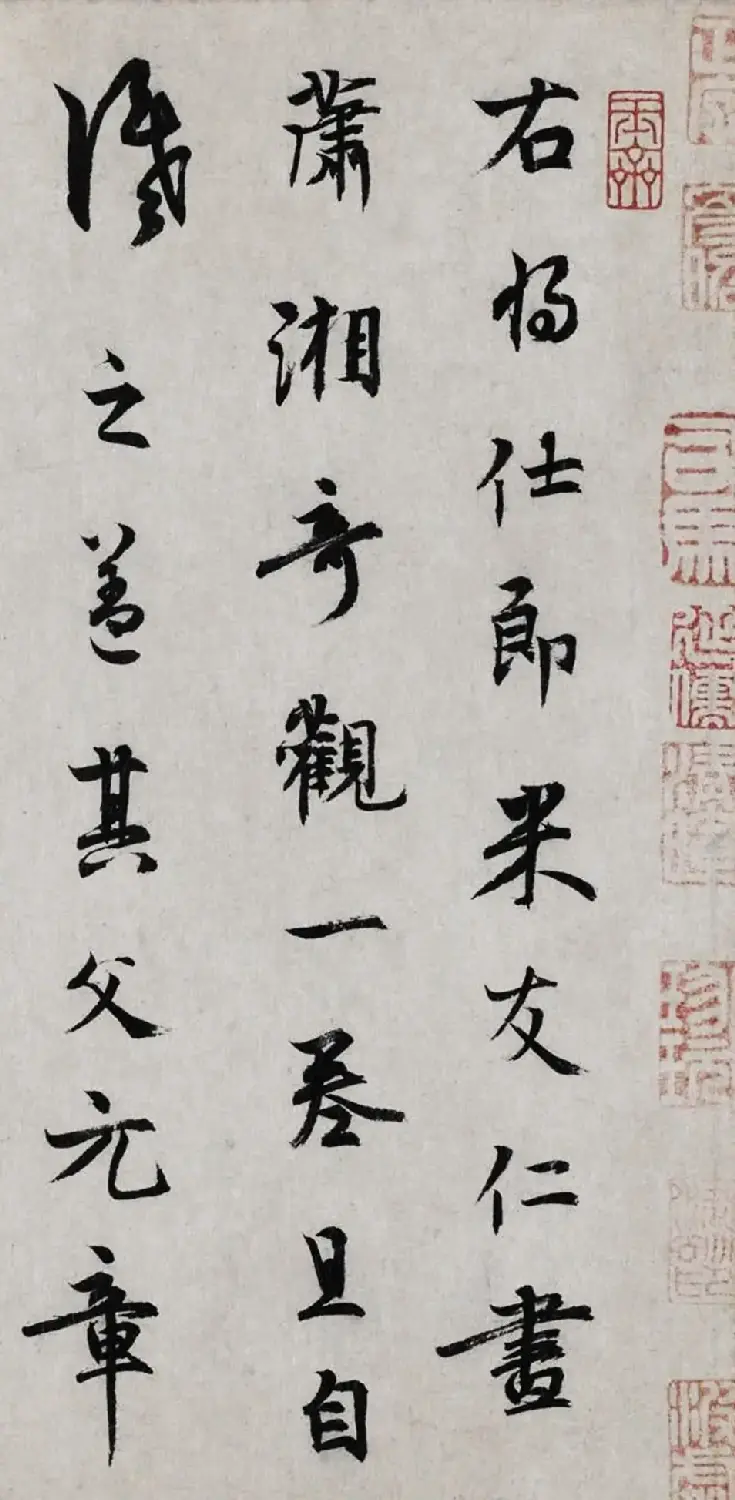 右将仕郎米友仁畫
蕭湘奇觀一卷且自
識之盖其父元章